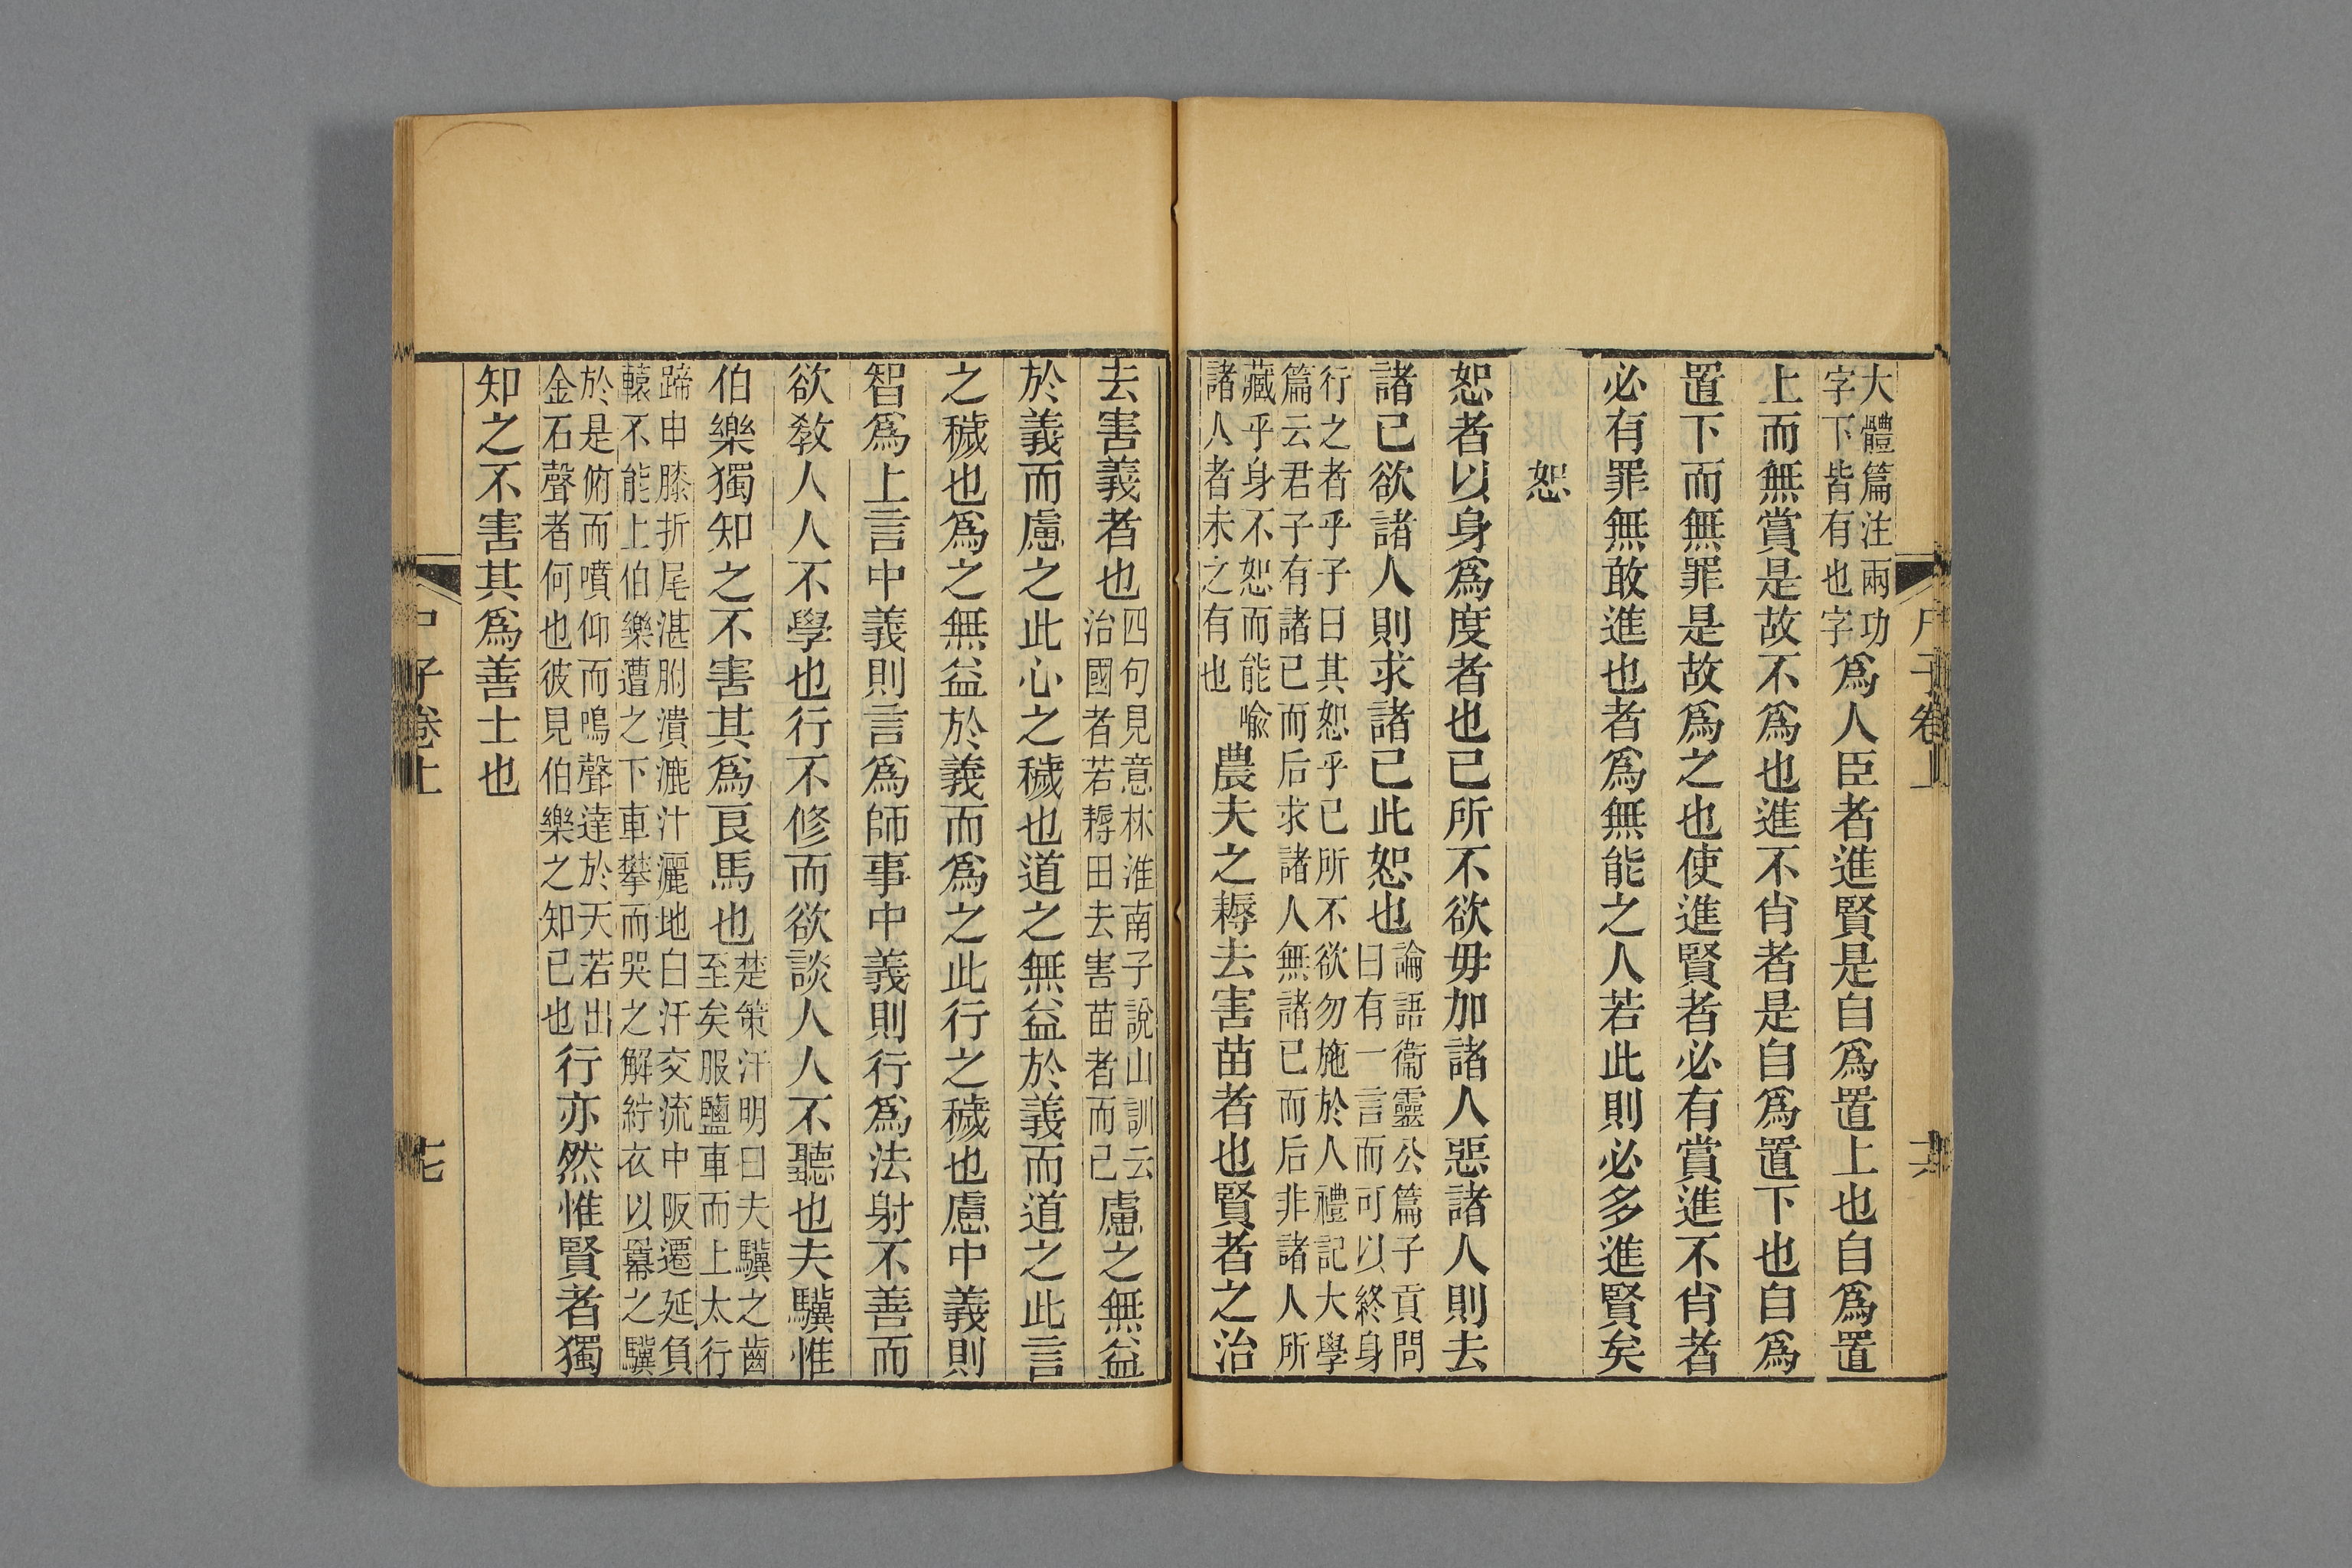 大體篇注兩功
字下皆有也字
爲人臣者進賢是自爲置上也自爲置
上而無賞是故不爲也進不肖者是自爲置下也自爲
置下而無罪是故爲之也使進賢者必有賞進不肖者
必有罪無敢進也者爲無能之人若此則必多進賢矣
恕
恕者以身爲度者也已所不欲毋加諸人惡諸人則去
諸已欲諸人則求諸已此恕也
論語衞靈公篇子貢問
曰有一言而可以終身
行之者乎子曰其恕乎已所不欲勿施於人禮記大學
篇云君子有諸已而后求諸人無諸已而后非諸人所
藏乎身不恕而能喻
諸人者未之有也
農夫之耨去害苗者也賢者之治
去害義者也
四句見意林淮南子說山訓云
治國者若耨田去害苗者而已
慮之無益
於義而慮之此心之穢也道之無益於義而道之此言
之穢也爲之無益於義而爲之此行之穢也慮中義則
智爲上言中義則言爲師事中義則行爲法射不善而
欲敎人人不學也行不修而欲談人人不聽也夫驥惟
伯樂獨知之不害其爲良馬也
楚策汗明曰夫驥之齒
至矣服鹽車而上太行
蹄申膝折尾湛胕潰漉汁灑地白汗交流中阪遷延負
轅不能上伯樂遭之下車攀而哭之解紵衣以冪之驥
於是俯而噴仰而鳴聲達於天若出
金石聲者何也彼見伯樂之知已也
行亦然惟賢者獨
知之不害其爲善士也
尸子卷上
子卷上